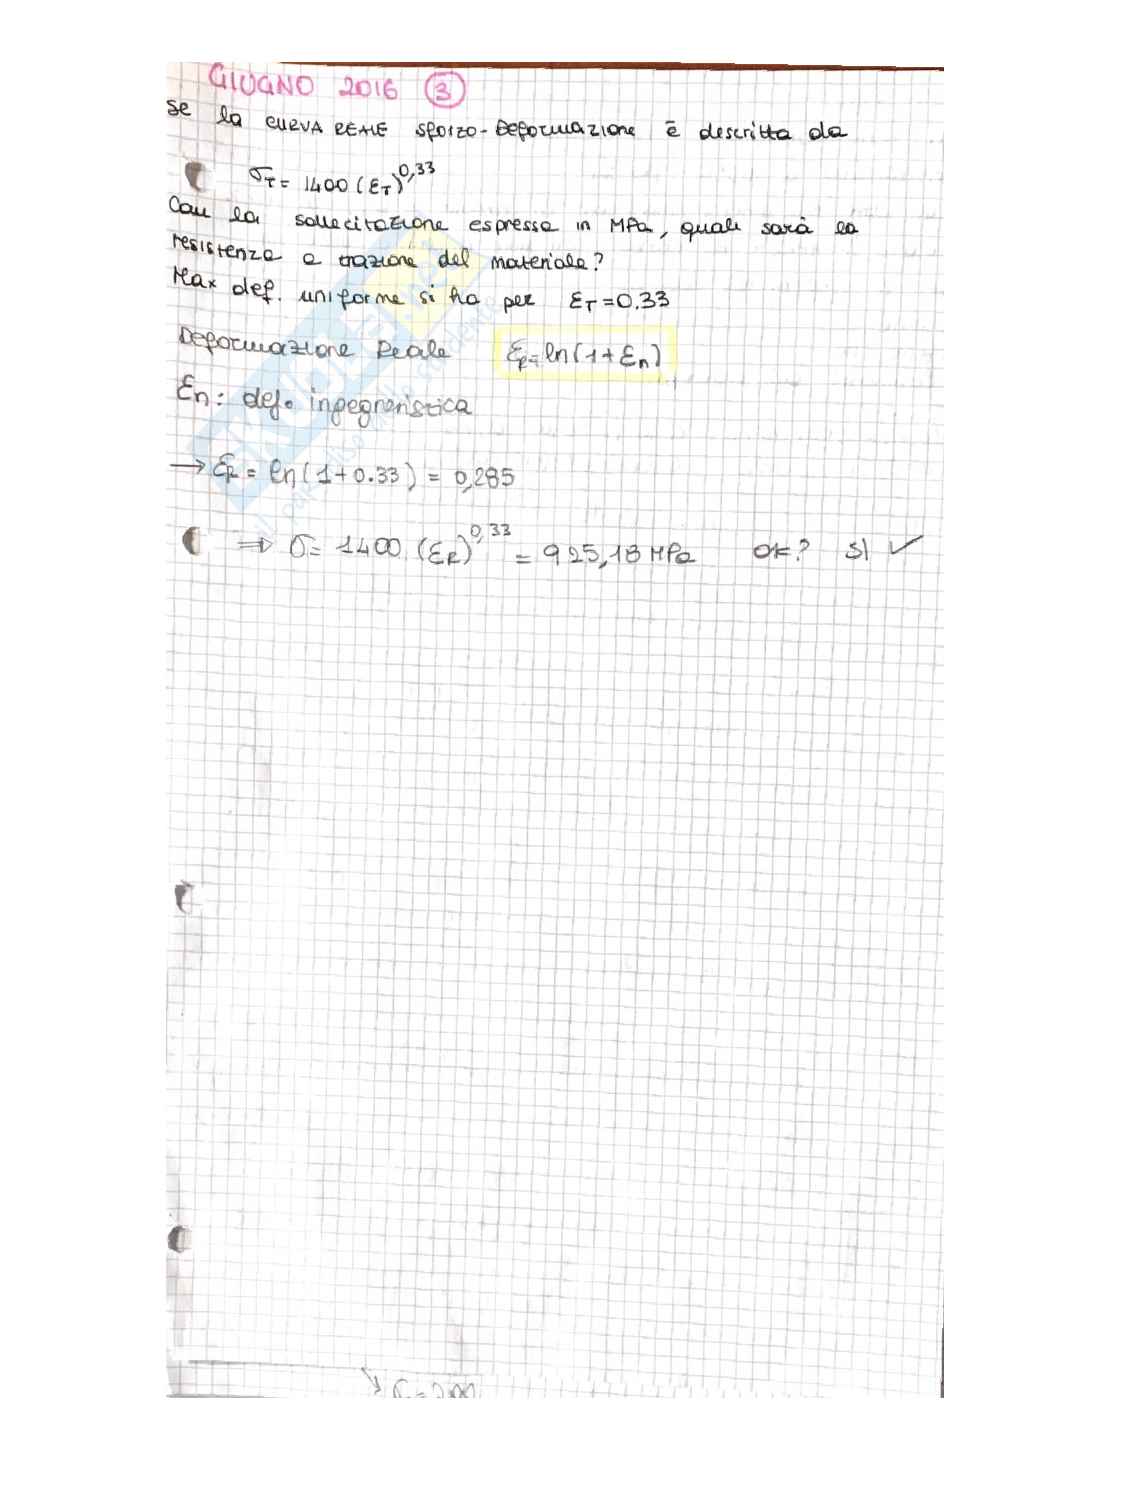 GIUGNO 2016 3
se la CURVA REALE sforzo-Deformazione è descritta da
σT = 1400 (εT)^0,33
Con la sollecitazione espressa in MPa, quale sarà la
resistenza a trazione del materiale?
Max def. uniforme si ha per εT = 0.33
Deformazione Reale εR = ln(1 + εn)
εn: def. ingegneristica
→ εR = ln(1+0.33) = 0,285
⇒ σ = 1400 (εR)^0,33 = 925,18 MPa OK? SI ✓